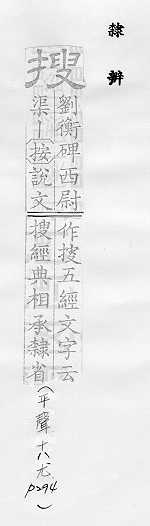 隸辨
搜
劉衡碑西尉
渠丨按說文
作𢯱五經文字云
搜經典相承隸省
(平聲十八尤 P294)